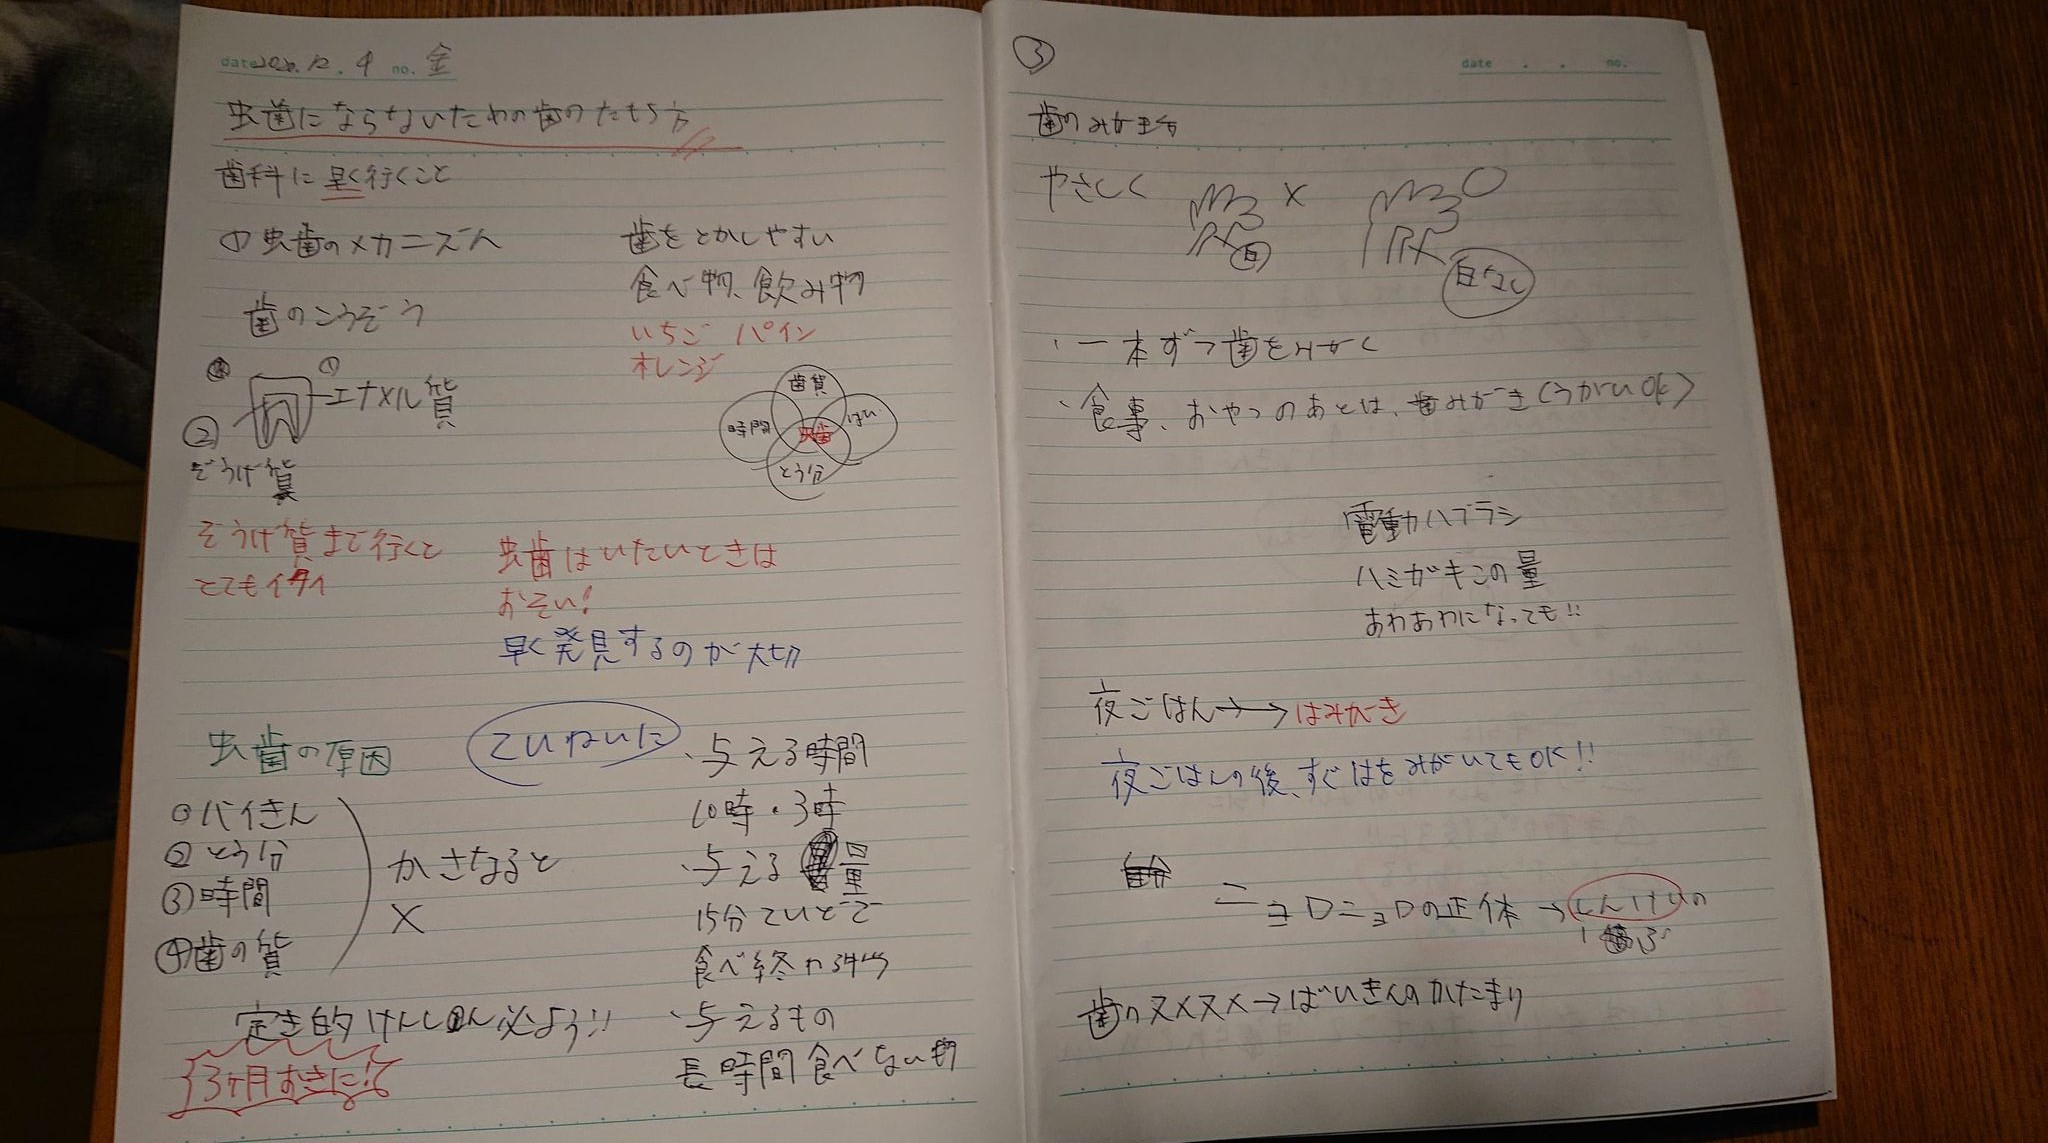 date 2020.12.4 no. 金
虫歯にならないための歯のたもち方
歯科に早く行くこと
①虫歯のメカニズム
歯のこうぞう
①
エナメル質
②
ぞうげ質
ぞうげ質まで行くと
とてもイタイ
歯をとかしやすい
食べ物、飲み物
いちご パイン
オレンジ
歯質
時間
虫歯
ばい
とう分
虫歯はいたいときは
おそい!
早く発見するのが大切
虫歯の原因
ていねいに
①バイきん
②とう分
③時間
④歯の質
かさなると
×
定き的けんしん必よう!!
3ヶ月おきに!
・与える時間
10時・3時
・与える量
15分ていどで
食べ終わる
・与えるもの
長時間食べない物
③
date . . no.
歯のみがき方
やさしく
×
○
・一本ずつ歯をみがく
・食事、おやつのあとは、歯みがき(うがいOK)
電動ハブラシ
ハミガキこの量
あわあわになっても!!
夜ごはん→→はみがき
夜ごはんの後、すぐはをみがいてもOK!!
ニョロニョロの正体→しんけいの
歯のヌメヌメ→ばいきんのかたまり